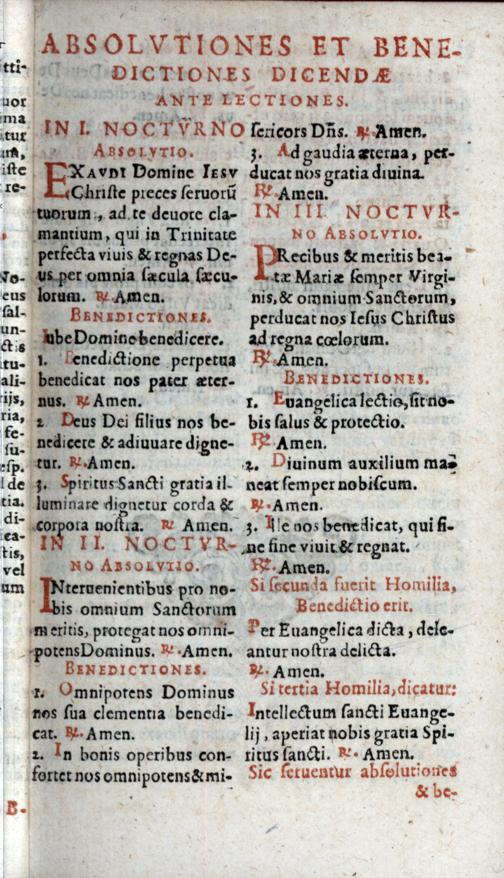 ABSOLVTIONES ET BENE-
DICTIONES DICENDÆ
ANTE LECTIONES.
IN I. NOCTVRNO
ABSOLVTIO.
EXAVDI Domine IESV
Christe preces seruorũ
tuorum, ad te deuote cla-
mantium, qui in Trinitate
perfecta viuis & regnas De-
us per omnia sæcula sæcu-
lorum. ℟. Amen.
BENEDICTIONES.
Iube Domine benedicere.
1. Benedictione perpetua
benedicat nos pater æter-
nus. ℟. Amen.
2 Deus Dei filius nos be-
nedicere & adiuuare digne-
tur. ℟. Amen.
3. Spiritus Sancti gratia il-
luminare dignetur corda &
corpora nostra. ℟. Amen.
IN II. NOCTVR-
NO ABSOLVTIO.
INteruenientibus pro no-
bis omnium Sanctorum
meritis, protegat nos omni-
potens Dominus. ℟. Amen.
BENEDICTIONES.
1. Omnipotens Dominus
nos sua clementia benedi-
cat. ℟. Amen.
2. In bonis operibus con-
fortet nos omnipotens & mi-
sericors Dñs. ℟. Amen.
3. Ad gaudia æterna, per-
ducat nos gratia diuina.
℟. Amen.
IN III. NOCTVR-
NO ABSOLVTIO.
PRecibus & meritis bea-
tæ Mariæ semper Virgi-
nis, & omnium Sanctorum,
perducat nos Iesus Christus
ad regna cœlorum.
℟. Amen.
BENEDICTIONES.
1. Euangelica lectio, sit no-
bis salus & protectio.
℟. Amen.
2. Diuinum auxilium ma-
neat semper nobiscum.
℟. Amen.
3. Ille nos benedicat, qui si-
ne fine viuit & regnat.
℟. Amen.
Si secunda fuerit Homilia,
Benedictio erit.
Per Euangelica dicta, dele-
antur nostra delicta.
℟. Amen.
Si tertia Homilia, dicatur:
Intellectum sancti Euange-
lij, aperiat nobis gratia Spi-
ritus sancti. ℟. Amen.
Sic seruentur absolutiones
& be-